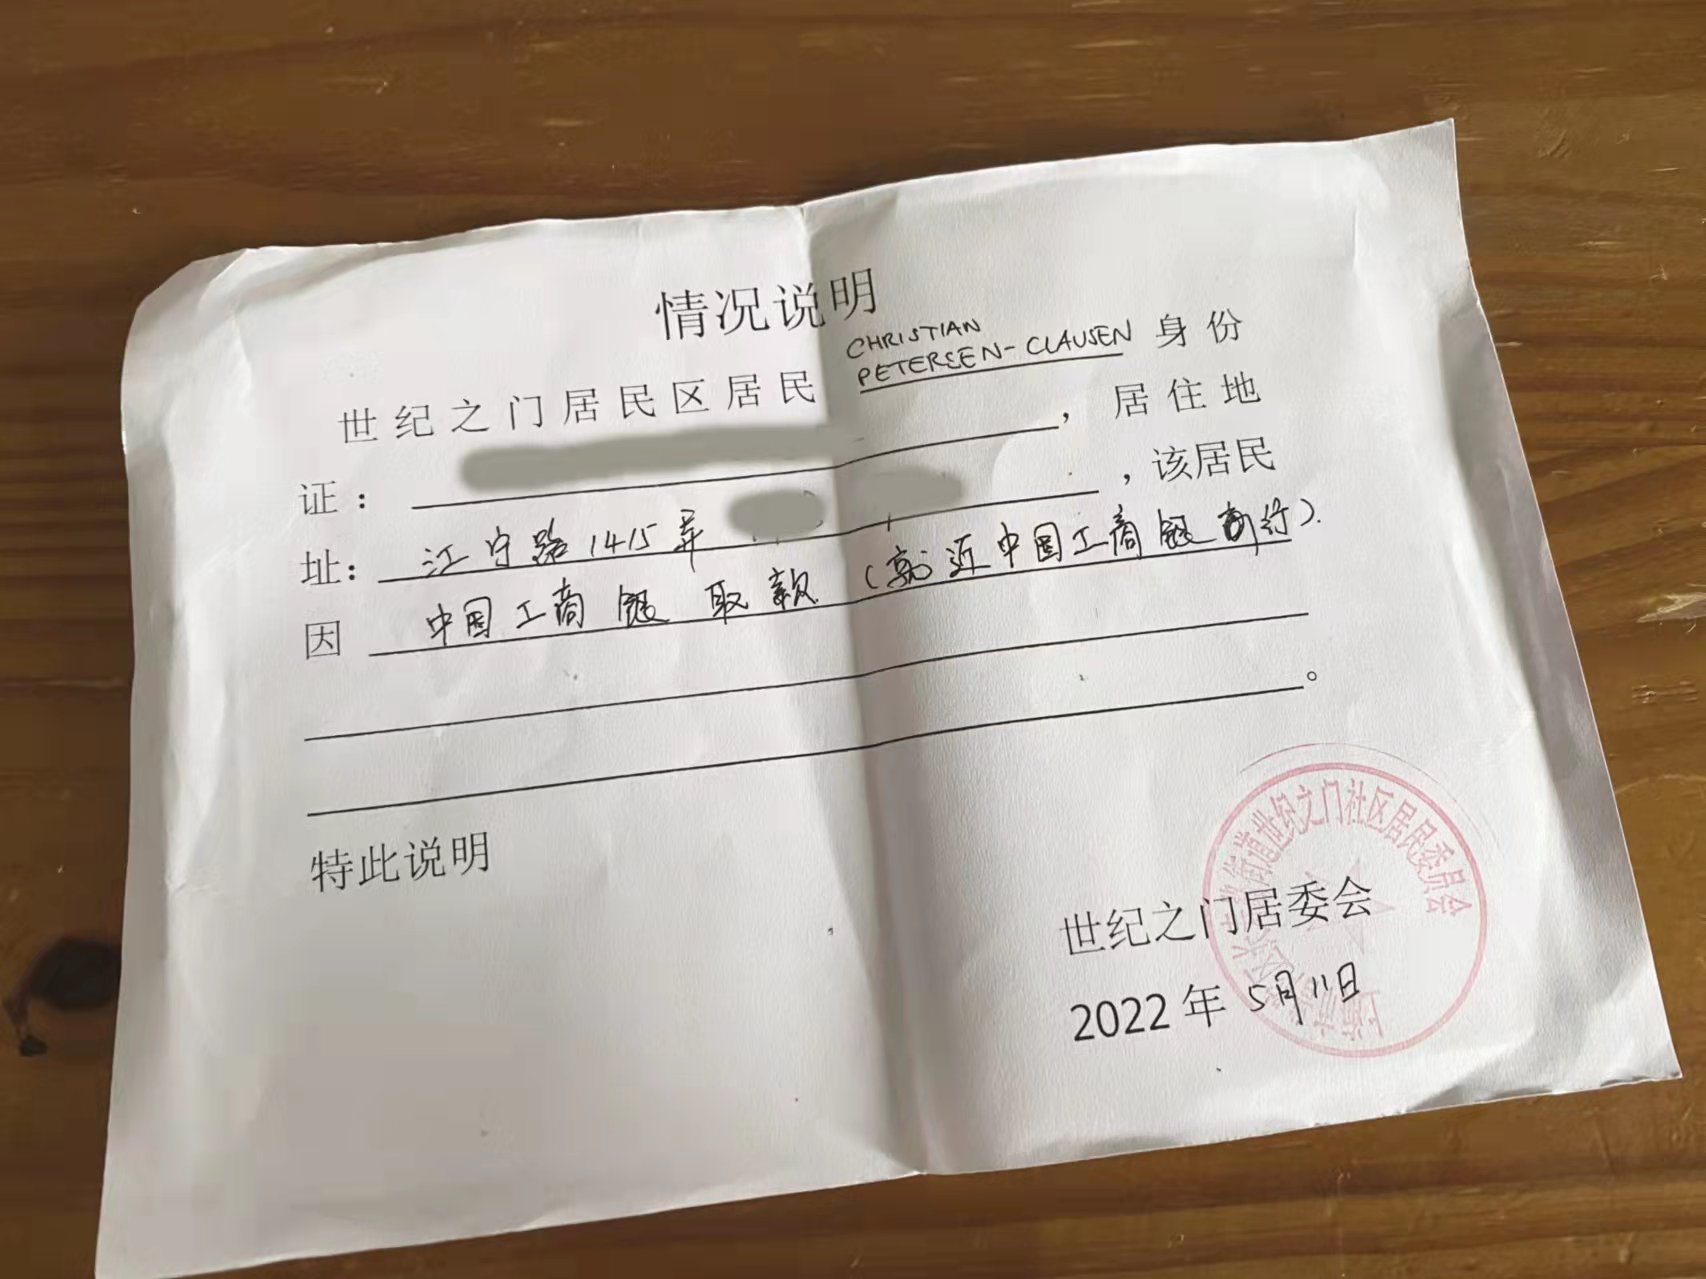 情况说明
世纪之门居民区居民 CHRISTIAN
PETERSEN-CLAUSEN 身份
证： ，居住地
址：江宁路1415弄 ，该居民
因 中国工商银 取款（就近中国工商银行）.
。
特此说明
世纪之门居委会
2022年5月11日
街道世纪之门社区居民委员会